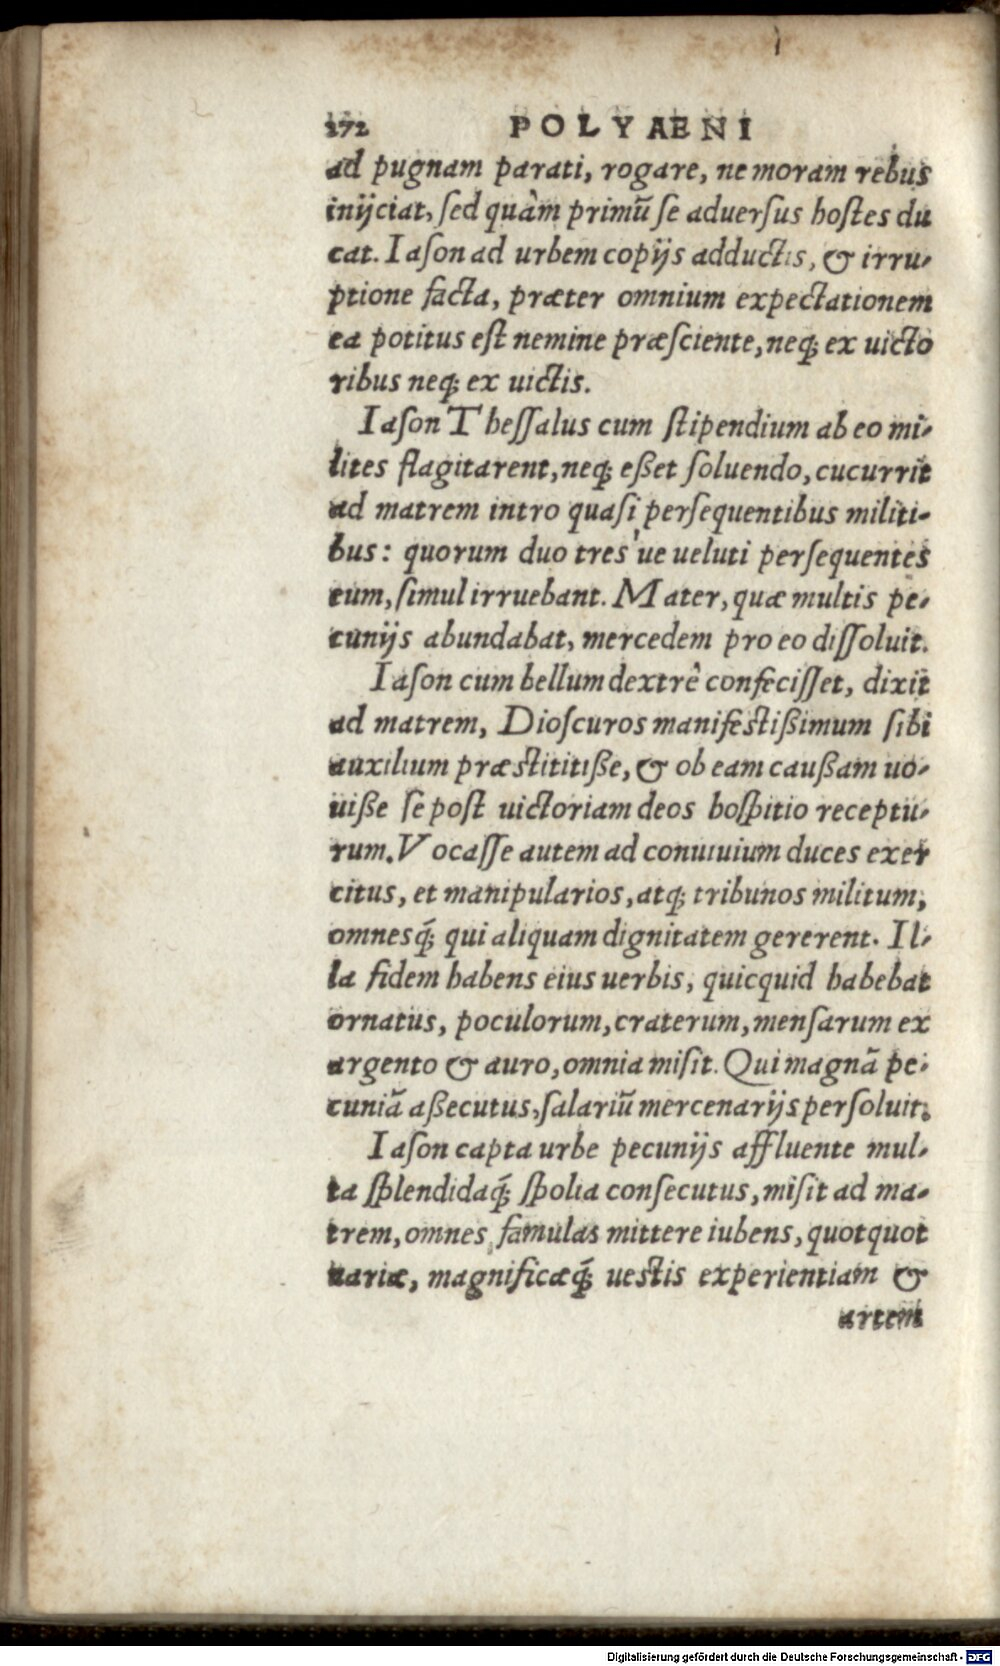 272 POLYAENI
ad pugnam parati, rogare, ne moram rebus
inijciat, ſed quàm primũ ſe aduerſus hoſtes du
cat. Iaſon ad urbem copijs adductis, & irru-
ptione facta, præter omnium expectationem
ea potitus eſt nemine præſciente, neq; ex uicto
ribus neq; ex uictis.
Iaſon Theſſalus cum ſtipendium ab eo mi-
lites flagitarent, neq; eßet ſoluendo, cucurrit
ad matrem intro quaſi perſequentibus militi-
bus: quorum duo tres'ue ueluti perſequentes
eum, ſimul irruebant. Mater, quæ multis pe-
cunijs abundabat, mercedem pro eo diſſoluit.
Iaſon cum bellum dextrê confeciſſet, dixit
ad matrem, Dioſcuros manifeſtißimum ſibi
auxilium præſtititiße, & ob eam caußam uo-
uiße ſe poſt uictoriam deos hoſpitio receptu-
rum. Vocaſſe autem ad conuiuium duces exer
citus, et manipularios, atq; tribunos militum,
omnesq́; qui aliquam dignitatem gererent. Il-
la fidem habens eius uerbis, quicquid habebat
ornatus, poculorum, craterum, menſarum ex
argento & auro, omnia miſit. Qui magnã pe-
cuniã aßecutus, ſalariũ mercenarijs perſoluit.
Iaſon capta urbe pecunijs affluente mul-
ta ſplendidaq́; ſpolia conſecutus, miſit ad ma-
trem, omnes famulas mittere iubens, quotquot
uariæ, magnificæq́; ueſtis experientiam &
artem
Digitalisierung gefördert durch die Deutsche Forschungsgemeinschaft - DFG